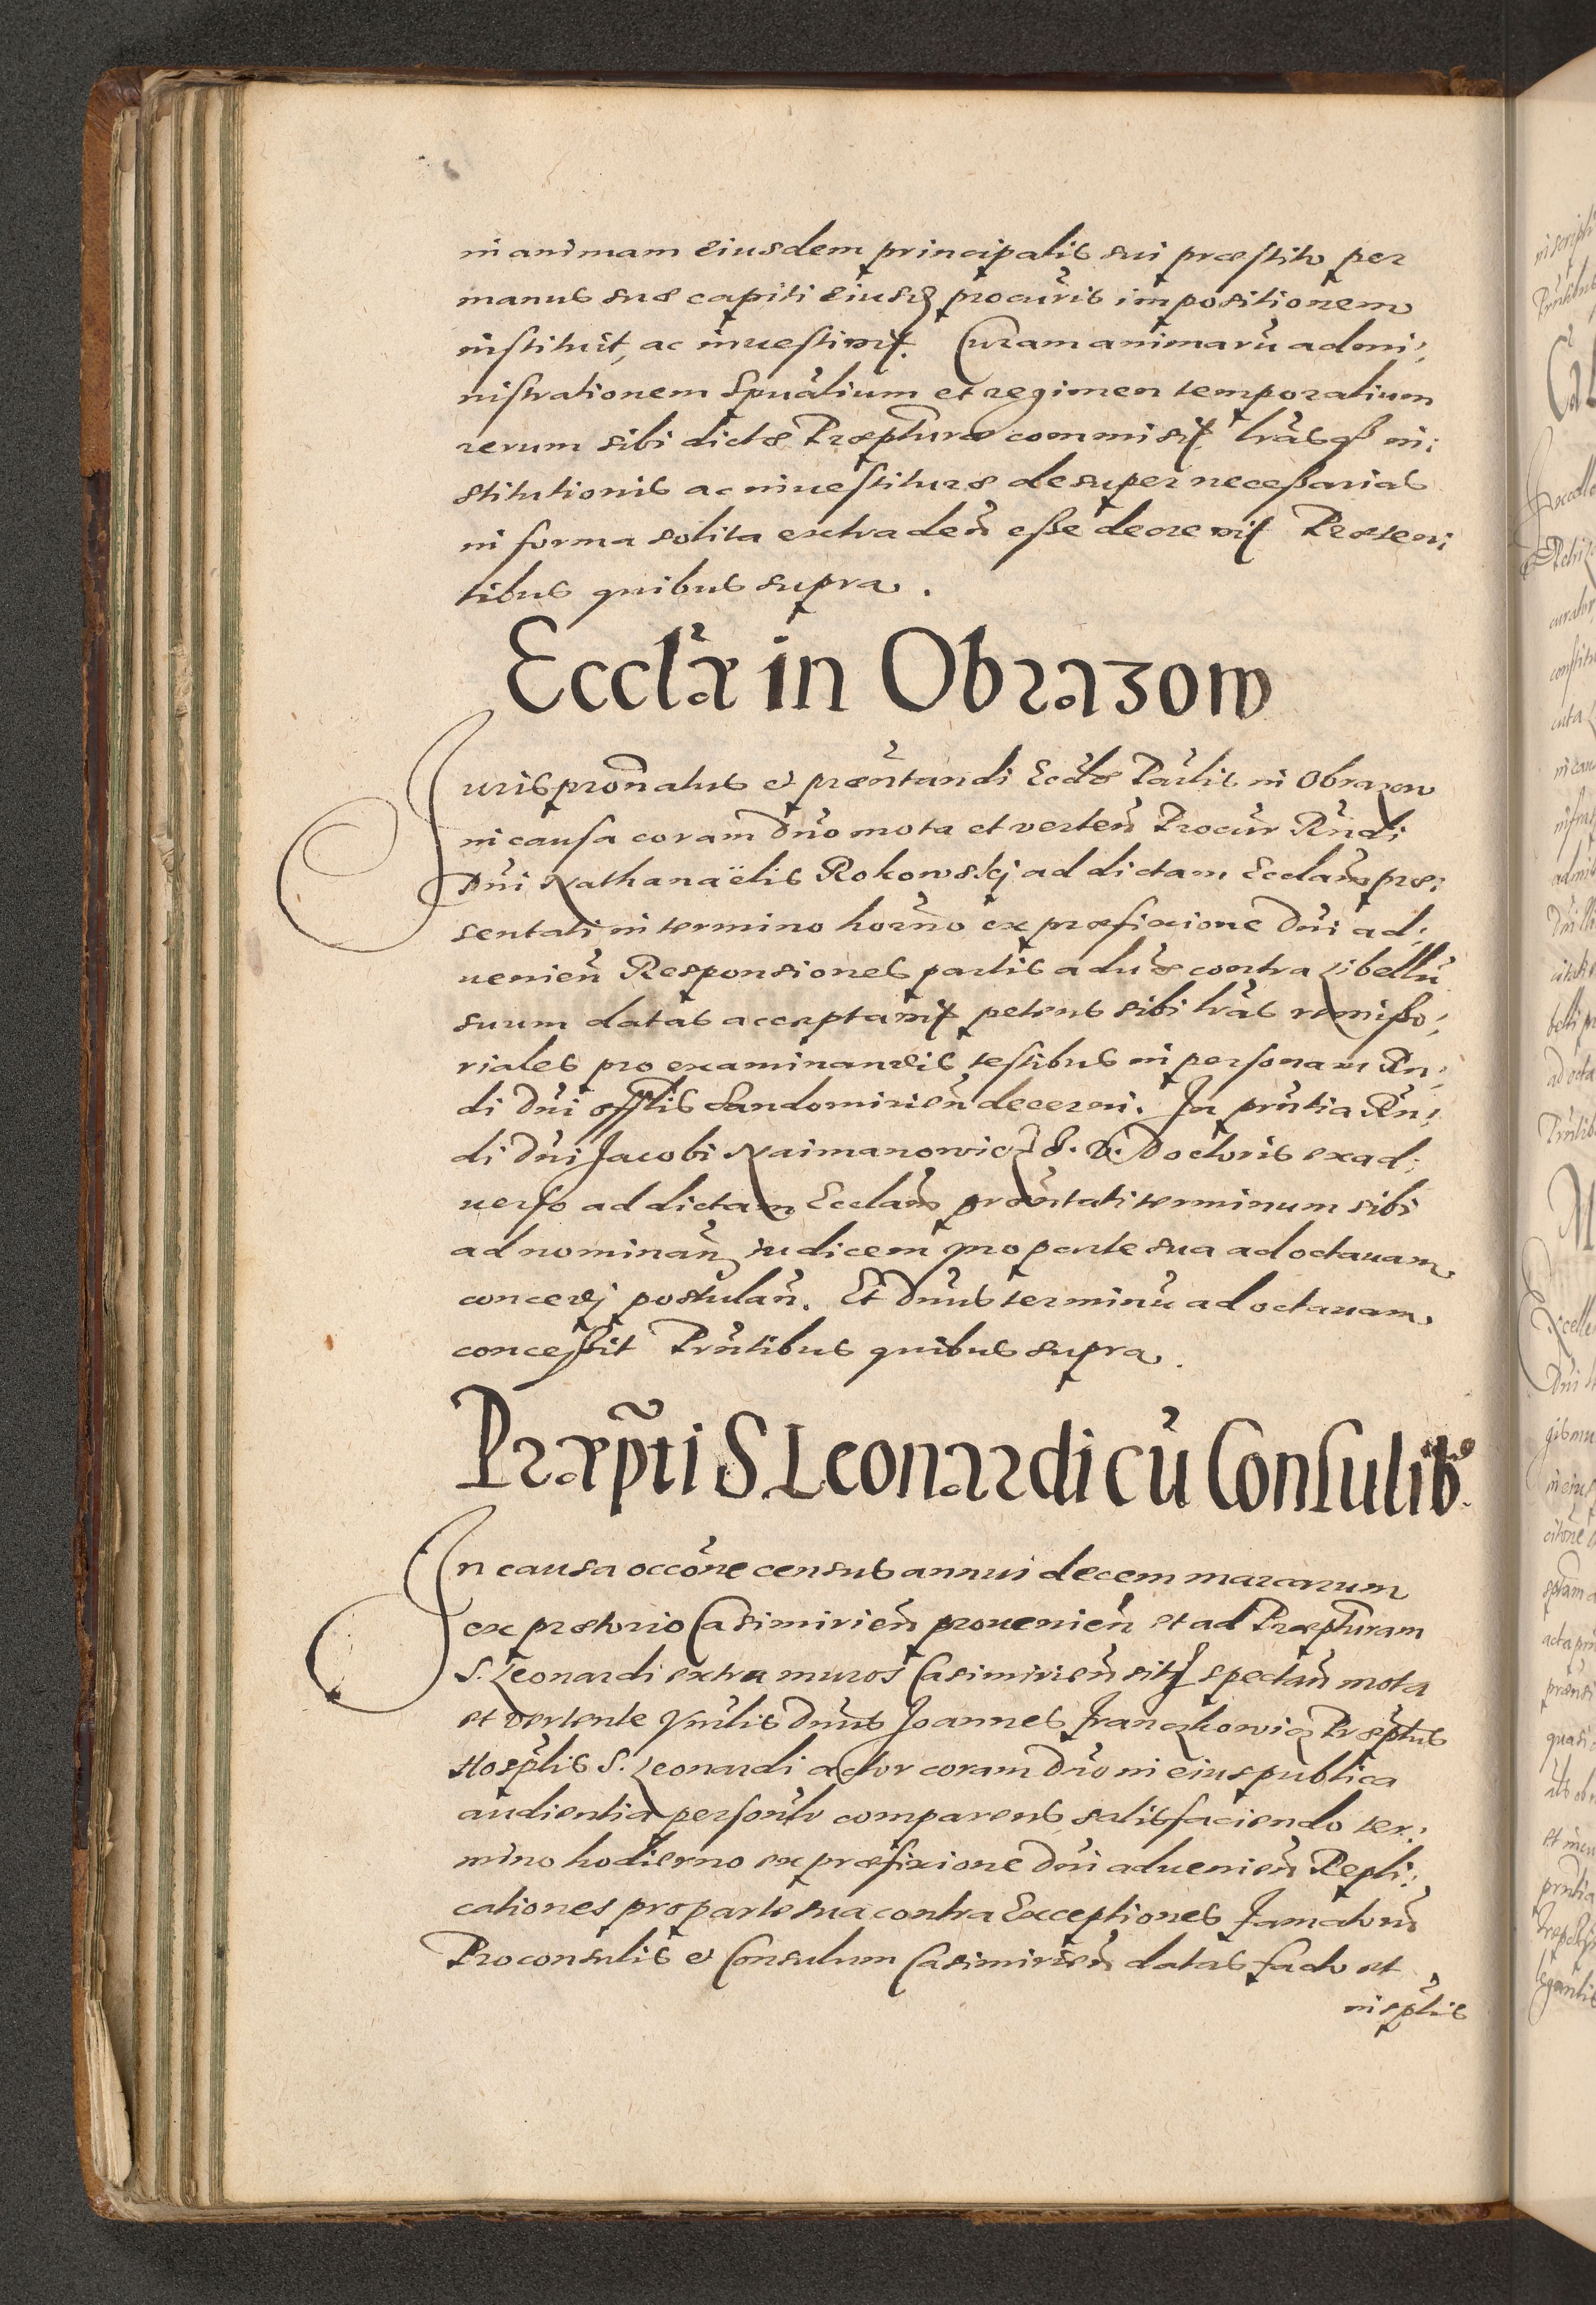 in animam eiusdem principalis sui præstito per
manus suæ capiti eiusd procũris impositionem
instituit, ac inuestiuit. Curam animarũ admi:
nistrationem Spũalium et regimen temporalium
rerum sibi dictæ Præpturæ commisit lr̃asq̃ in:
stitutionis ac inuestituræ desuper necessarias
in forma solita extraden̄ esse decreuit Præsen:
tibus quibus supra.
Eccl̃æ in Obrazow
Jurispron̄atus et præñtandi Eccl̃æ Par̃lis in Obrazow
in causa coram Dño mota et verten̄ Procur̃ Rñdi
Dñi Nathanaëlis Rokowskj ad dictam Ecclam̃ præ:
sentati in termino horño ex præfixione Dñi ad:
uenien̄ Responsiones partis aduersæ contra Libellũ
suum datas acceptauit petens sibi lr̃as remisso:
riales pro examinandis testibus in personam Rñ:
di Dñi offlis Sandomirien̄ decerni. In prñtia Rñ:
di Dñi Jacobi Naimanowicz S. D. Doctoris ex ad:
uerso ad dictam Ecclam̃ præñtati terminum sibi
ad nominan̄ iudicem pro parte sua ad octauam
concedj postulan̄. Et Dñus terminũ ad octauam
concessit Prñtibus quibus supra.
Præp̃ti S. Leonardi cũ Consulib9
In causa occõne census annui decem marcarum
ex prætorio Casimirien̄ prouenien̄ et ad Præpturam
S. Leonardi extra muros Casimirien̄ sit spectan̄ mota
et vertente Vñlis Dñus Joannes Franczkowicz Præptus
Hosp̃lis S. Leonardi actor coram Dño in eius publica
audientia personlr comparens satisfaciendo ter:
mino hodierno ex præfixione Dñi aduenien̄ Repli:
cationes pro parte sua contra Exceptiones Famator̃
Proconsulis et Consulum Casimirien̄ datas facto et
in sp̃lis